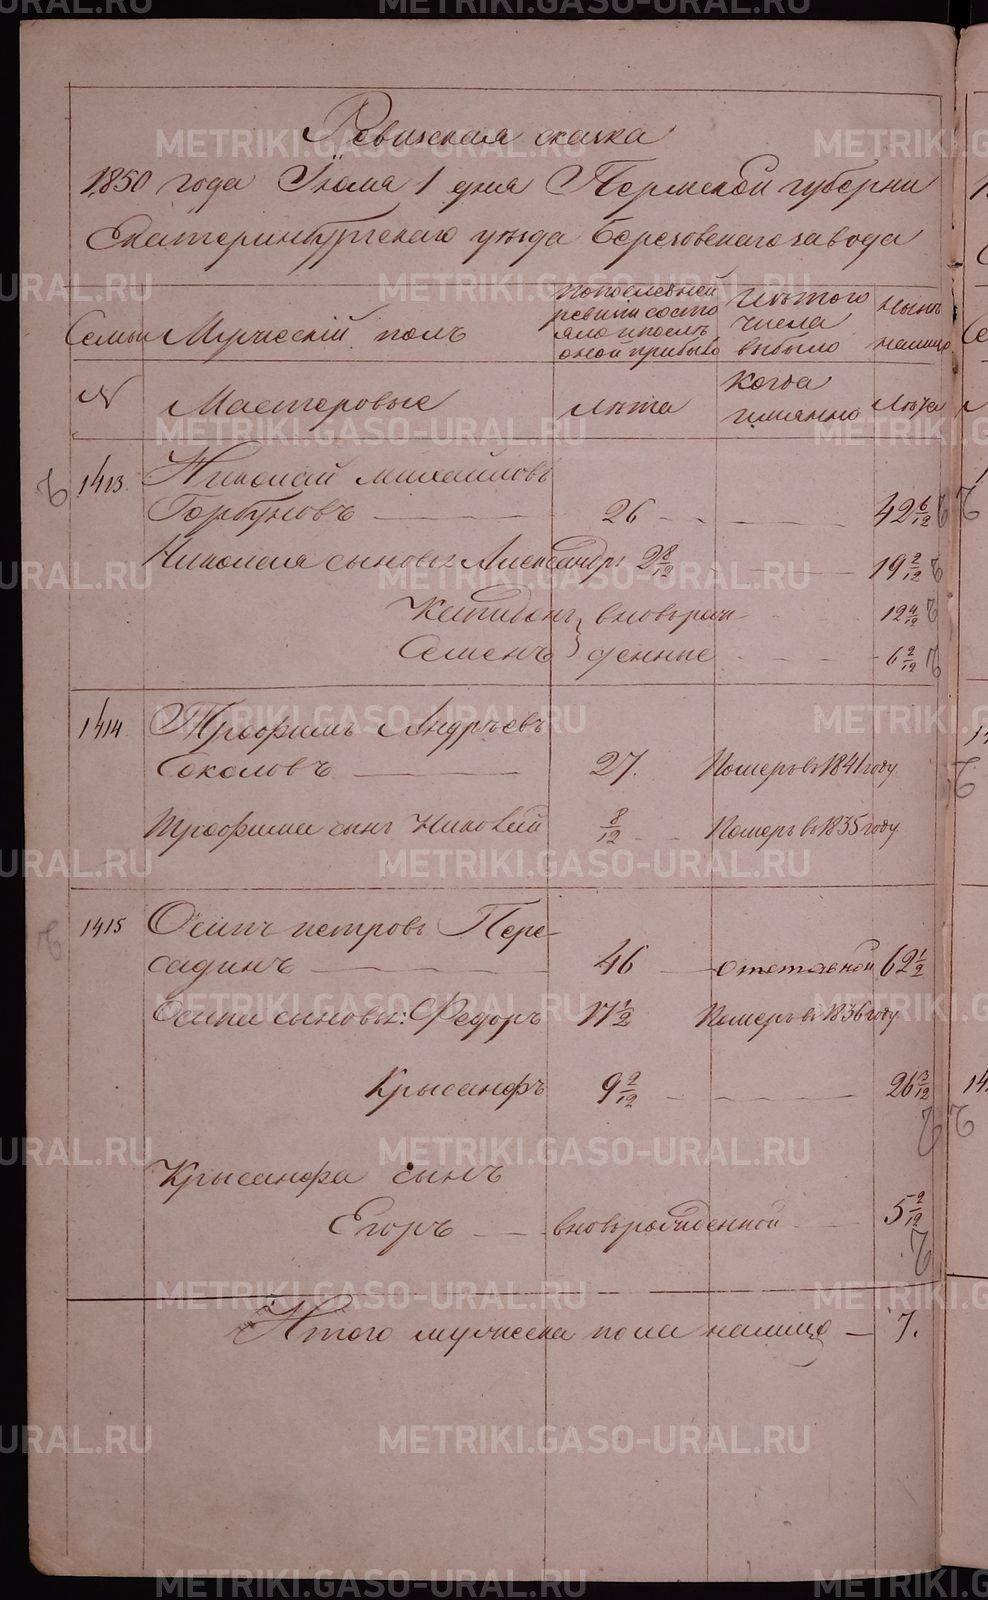 Ревизская сказка
1850 года Іюля 1 дня Пермской губерни
Екатеринбургскаго уезда Березовскаго завода
Семьи Мужескій полъ
по последней ревизіи состояло и посль оной прибыло
Изъ того числа выбыло
Нынь налицо
№ Мастеровые
Лѣта
когда имянно
Лѣта
1413 Николай михайловъ
Горбуновъ 26 42 6/12
Николая сыновья Александръ 2 8/12 19 2/12
вновьрож 12 4/12
Семенъ денные 6 2/12
1414 Трофимъ Андрѣевъ
Соколовъ 27. Померъ въ 1841 году
Трофима сынъ Николай 8/12 Померъ въ 1835 году
1415 Осипъ петровъ Пере-
садинъ 46 отставной 62 1/2
Осипа сыновья: Федоръ 17 1/2 Померъ въ 1836 году
Крысанфъ 9 2/12 26 3/12
Крысанфа сынъ
Егоръ вновьрожденной 5 2/12
Итого мужеска пола налицо — 7.
METRIKI.GASO-URAL.RU